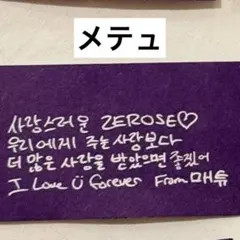 メテュ
사랑스러운 ZEROSE♡
우리에게 주는 사랑보다
더 많은 사랑을 받았으면 좋겠어
I Love Ü forever From 매튜